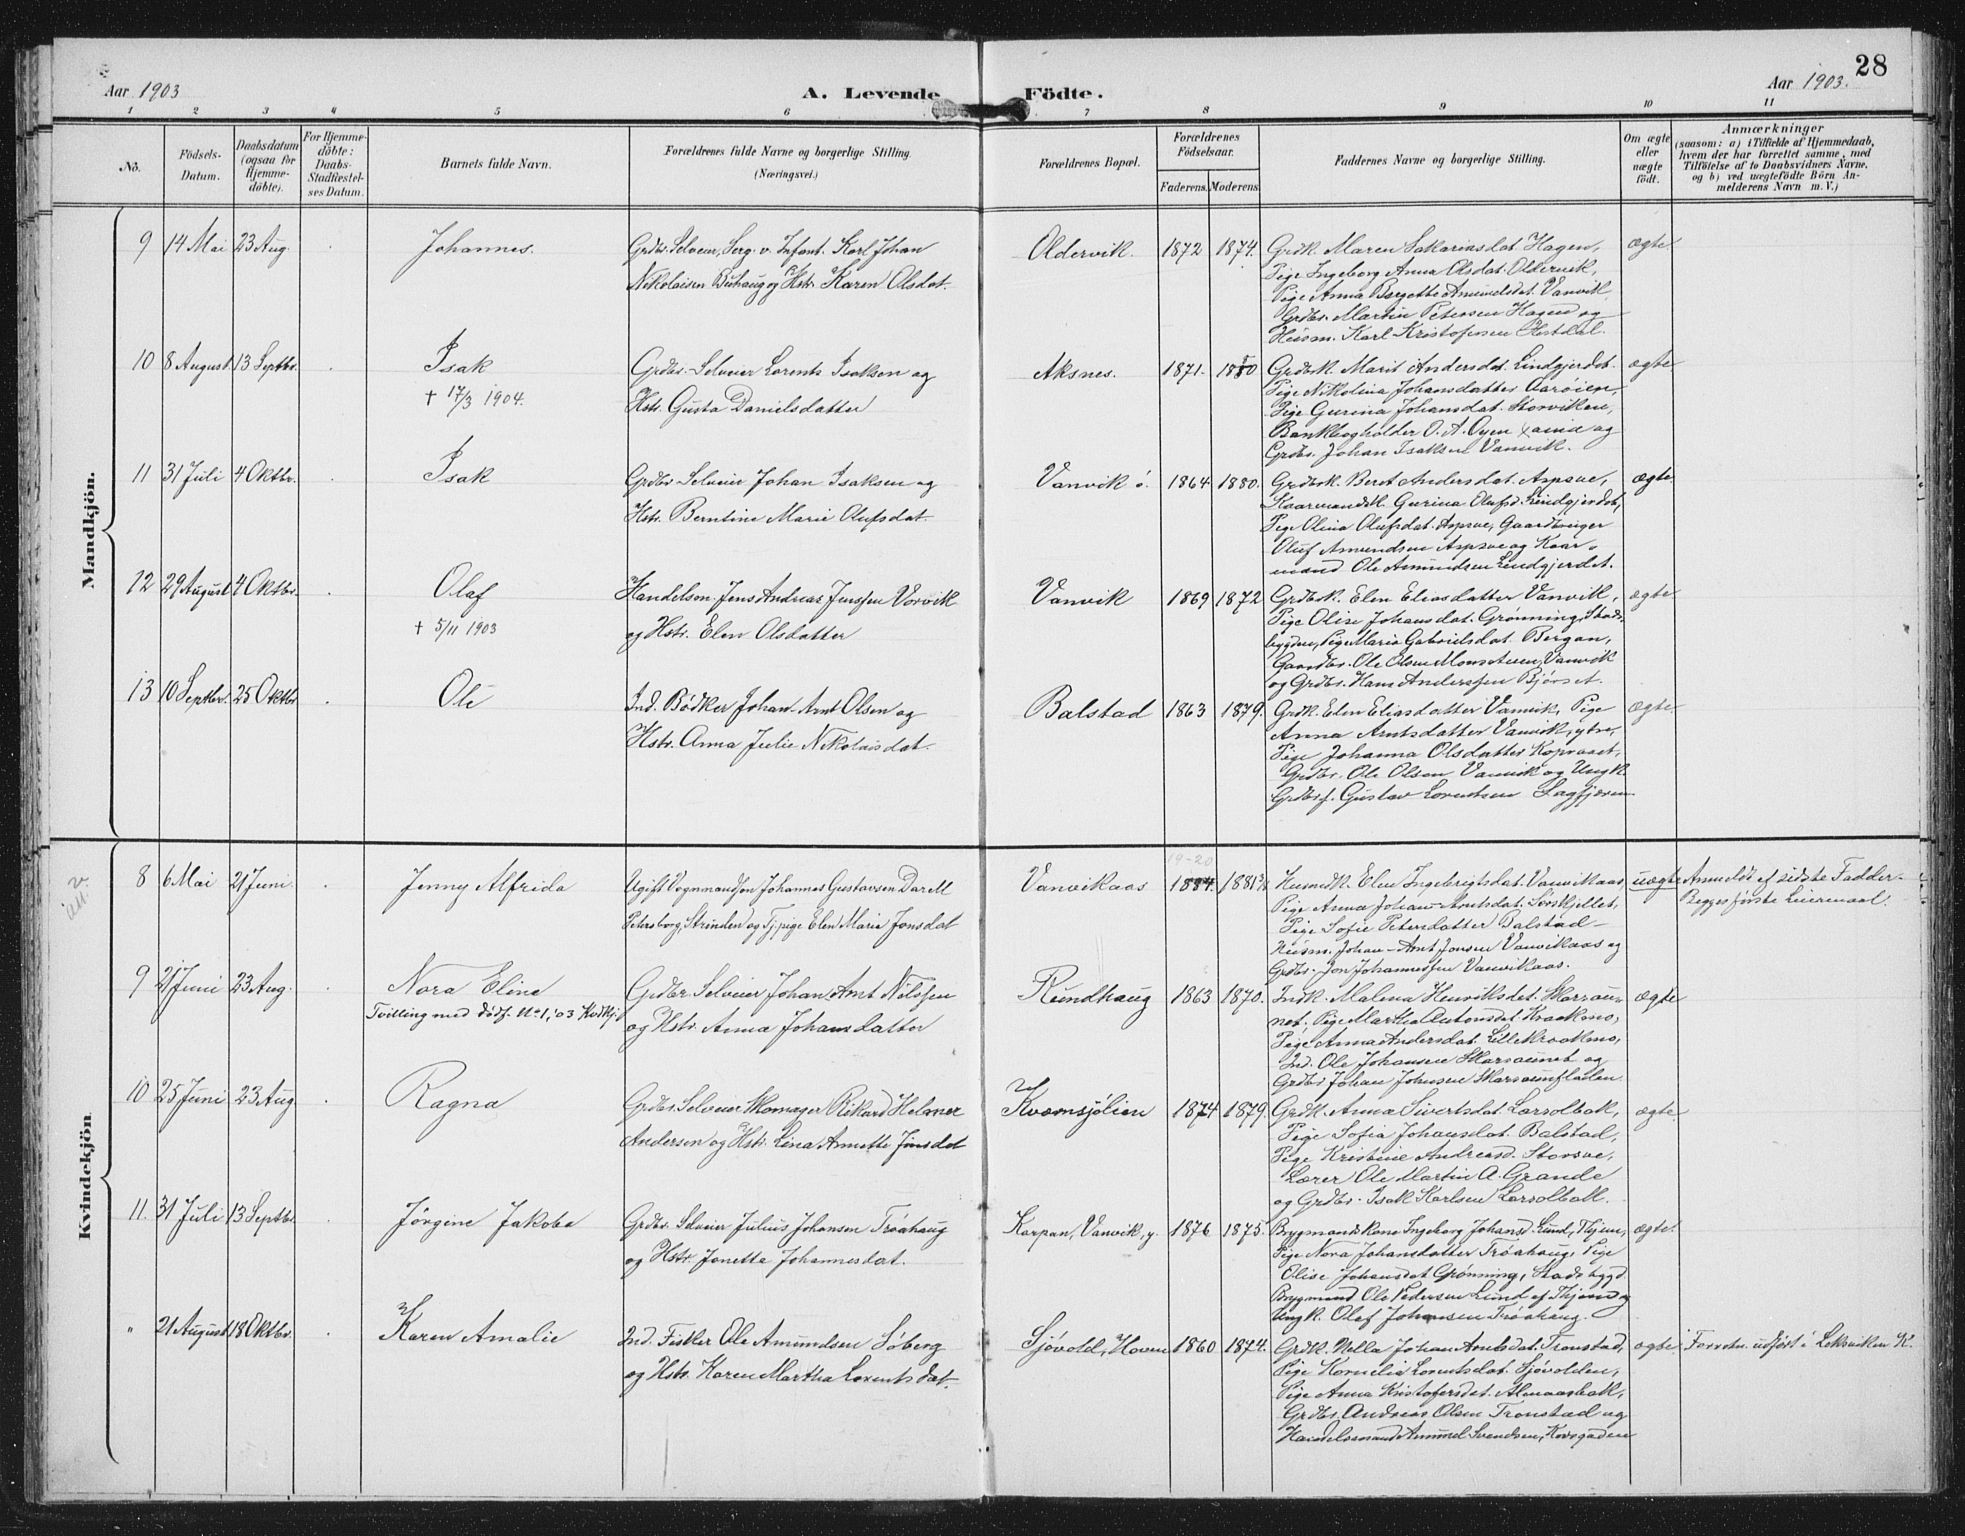 28
Aar 1903
A. Levende
Födte.
Aar 1903.
1 2 3 4 5 6 7 8 9 10 11
No.
Födsels-
Datum.
Daabsdatum
(ogsaa for
Hjemme-
döbte).
For Hjemme-
döbte:
Daabs-
Stadfestel-
ses Datum.
Barnets fulde Navn.
Forældrenes fulde Navne og borgerlige Stilling.
(Næringsvei.)
Forældrenes Bopæl.
Forældrenes
Födselsaar.
Faderens. Moderens.
Faddernes Navne og borgerlige Stilling.
Om ægte
eller
uægte
födt.
Anmærkninger
(saasom: a) i Tilfælde af Hjemmedaab,
hvem der har forrettet samme, med
Tilföielse af to Daabsvidners Navne,
og b) ved uægtefödte Börn An-
melderens Navn m. V.)
Mandkjön.
9 14 Mai 23 Aug. Johannes.
Grdbr. Selveier, Serg. v. Infant. Karl Johan
Nikolaisen Buhaug og Hstr. Karen Olsdat.
Oldervik. 1872 1874.
Grdk. Maren Sakariasdat. Hagen,
Pige Ingeborg Anna Olsdat. Oldervik,
Pige Anna Bergette Amundsdat. Vanvik,
Grdbr. Martin Petersen Hagen og
Husm. Karl Kristofersen Hestdal.
ægte
10 8 August 13 Septbr. Isak
† 17/3 1904.
Grdbr. Selveier Lorents Isaksen og
Hstr. Gusta Danielsdatter
Aksnes. 1871. 1880
Grdbrk. Marit Andersdat. Lindgjerdet.
Pige Nikolina Johansdatter Aarøien,
Pige Gurina Johansdat. Storviken,
Bankbogholder O. A. Øyen og
Grdbr. Johan Isaksen Vanvik.
ægte
11 31 Juli 4 Oktbr. Isak
Grdbr. Selveier Johan Isaksen og
Hstr. Berntine Marie Olufsdat.
Vanvik ö. 1864 1880.
Grdbrk. Beret Andersdat. Aspaae,
Kaarmandsk. Gurina Olufsd. Lindgjerdet,
Pige Olina Olufsdat. Aspaae, Gaardbruger
Oluf Amundsen Aspaae og Kaar-
mand Ole Amundsen Lindgjerdet.
ægte
12 29 August 4 Oktbr. Olaf
† 5/11 1903
Handelsm. Jens Andreas Jenssen Vorvik
og Hstr. Elen Olsdatter
Vanvik 1869 1872
Grdbrk. Elen Eliasdatter Vanvik,
Pige Olise Johansdat. Grønning, Stads-
bygden, Pige Maria Gabrielsdat. Bergan,
Gaardbr. Ole Olsen Vanvik
og Grdbr. Hans Anderssen Bjørset.
ægte
13 10 Septbr. 25 Oktbr Ole
Ind. Bødker Johan Arnt Olsen og
Hstr. Anna Julie Nikolaisdat.
Balstad 1863 1879.
Grdk. Elen Eliasdatter Vanvik, Pige
Anna Arntsdatter Vanvik, ytre,
Pige Johanna Olsdatter Kopraaet,
Grdbr. Ole Olsen Vanvik og Ungk.
Grdbrs. Gustav Lorentsen
ægte.
Kvindekjön
8 6 Mai 21 Juni. Jenny Alfrida
Ugift Vognmandssøn Johannes Gustavsen Dar M
Petersborg, Strinden og Tj.pige Elen Marie Jonsdat
Vanvikaas
19-20
1884. 1881
Husmdk. Elen Ingebrigtsdat. Vanvikaas,
Pige Anna Johan-Arntsdat. Sørskjellet,
Pige Sofie Petersdatter Balstad
Husm. Johan-Arnt Jonsen Vanvikaas og
Grdbr. Jon Johannessen Vanvikaas.
uægte
Anmeldt af sidste Fadder-
Begges første Leiermaal.
9 21 Juni 23 Aug. Nora Eline
Tvilling med dødf. No 1, '03 Kvdkj.
Grdbr. Selveier Johan Arnt Nilssen
og Hstr. Anna Johansdatter
Rundhaug 1863 1870.
Indk. Malena Henriksdat. Skarsau-
net. Pige Martha Antonsdat. Kraakmo,
Pige Anna Andersdat. Lillekraakmo,
Ind. Ole Johansen Skarsaunet og
Grdbr Johan Johnsen Skarsaunfladen
ægte
10 25 Juni 23 Aug Ragna
Grdbr. Selveier Skomager Rikard Helmer
Andersen og Hstr. Lina Annette Jonsdat
Kvernsjølien 1874 1879.
Grdk. Anna Sivertsdat. Larsolbak,
Pige Sofia Johansdat. Balstad,
Pige Kristine Andreasd. Storaae,
Lærer Ole Martin A. Grande
og Grdbr. Isak Karlsen Larsolbak.
ægte
11. 31 Juli 13 Septbr. Jørgine Jakoba
Grdbr. Selveier Julius Johansen Trøahaug
og Hstr. Jonetta Johannesdat.
Karpan, Vanvik, y. 1876 1875.
Brygmandskone Ingeborg Johansd. Lund, Thjem,
Pige Nora Johansdatter Trøahaug, Pige
Olise Johansdat Grønning, Stadsbygd.
Brygmand Ole Pedersen Lund af Thjem og
Ungk. Olaf Johansen Trøahaug.
ægte.
" 21 August 18 Oktbr. Karen Amalie
Ind. Fisker Ole Amundsen Søberg
og Hstr. Karen Martha Lorentsdat.
Sjøvold, Hoven 1860 1874.
Grdk. Nella Johan Arntsdat. Tronstad,
Pige Kornelia Lorentsdat. Sjøvolden,
Pige Anna Kristofersdat. Almaasbak,
Grdbr. Andreas Olsen Tronstad og
Handelsmand Ammel Svendsen,
ægte
Forretn. udført i Leksviken K.